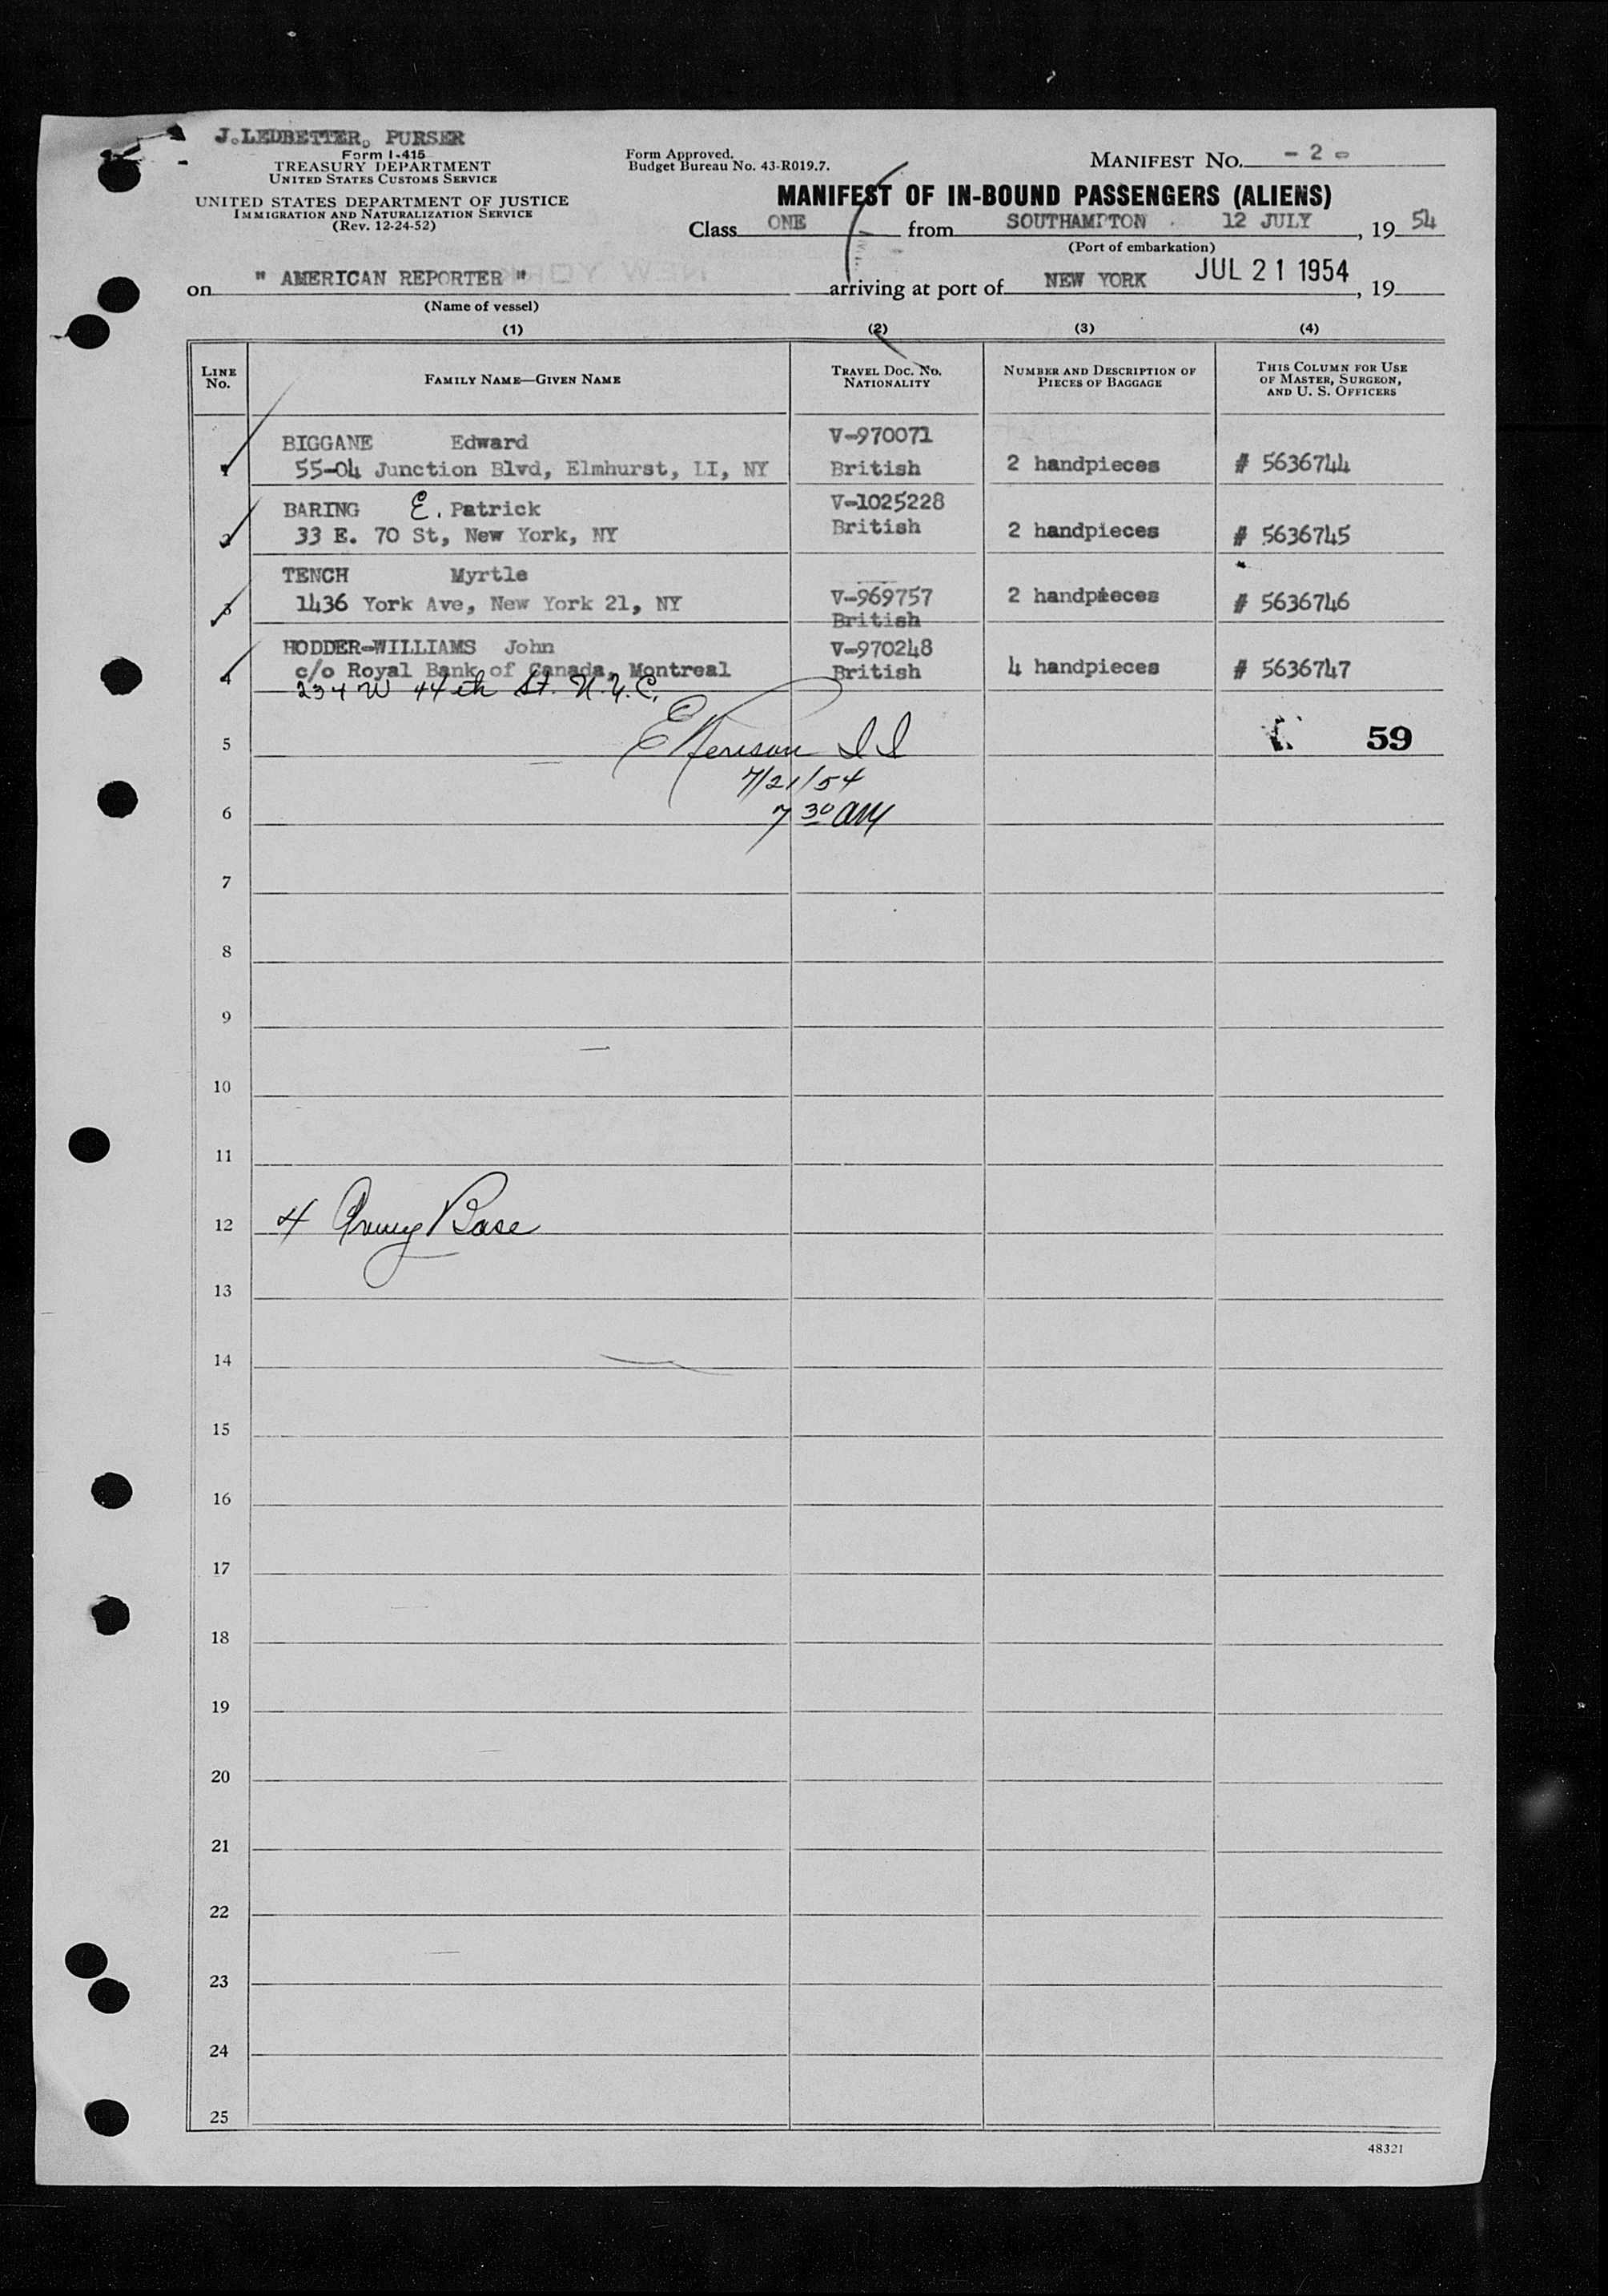 J.LEDBETTER, PURSER
Form I-415
TREASURY DEPARTMENT
UNITED STATES CUSTOMS SERVICE
UNITED STATES DEPARTMENT OF JUSTICE
IMMIGRATION AND NATURALIZATION SERVICE
(Rev. 12-24-52)
Form Approved.
Budget Bureau No. 43-R019.7.
MANIFEST NO. - 2 -
MANIFEST OF IN-BOUND PASSENGERS (ALIENS)
Class ONE from SOUTHAMPTON 12 JULY, 19 54
(Port of embarkation)
on " AMERICAN REPORTER " arriving at port of NEW YORK JUL 21 1954, 19
(Name of vessel)
(1) (2) (3) (4)
LINE No. FAMILY NAME—GIVEN NAME TRAVEL DOC. NO. NATIONALITY NUMBER AND DESCRIPTION OF PIECES OF BAGGAGE THIS COLUMN FOR USE OF MASTER, SURGEON, AND U. S. OFFICERS
BIGGANE Edward V-970071
1 55-04 Junction Blvd, Elmhurst, LI, NY British 2 handpieces # 5636744
BARING E. Patrick V-1025228
2 33 E. 70 St, New York, NY British 2 handpieces # 5636745
TENCH Myrtle
3 1436 York Ave, New York 21, NY V-969757 2 handpieces # 5636746
British
HODDER-WILLIAMS John V-970248
4 c/o Royal Bank of Canada, Montreal British 4 handpieces # 5636747
234 W 44th St. N.Y.C.
5 II 59
7/21/54
6 7 30 AM
7
8
9
10
11
12 4 Army Base
13
14
15
16
17
18
19
20
21
22
23
24
25
48321